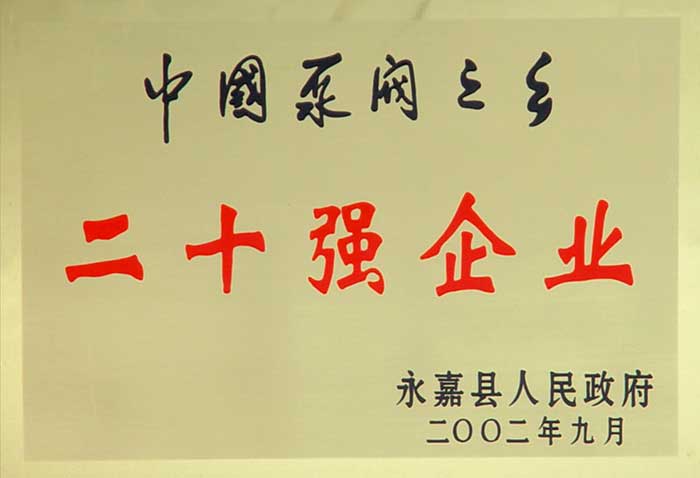 中國泵阀之乡
二十强企业
永嘉县人民政府
二〇〇二年九月